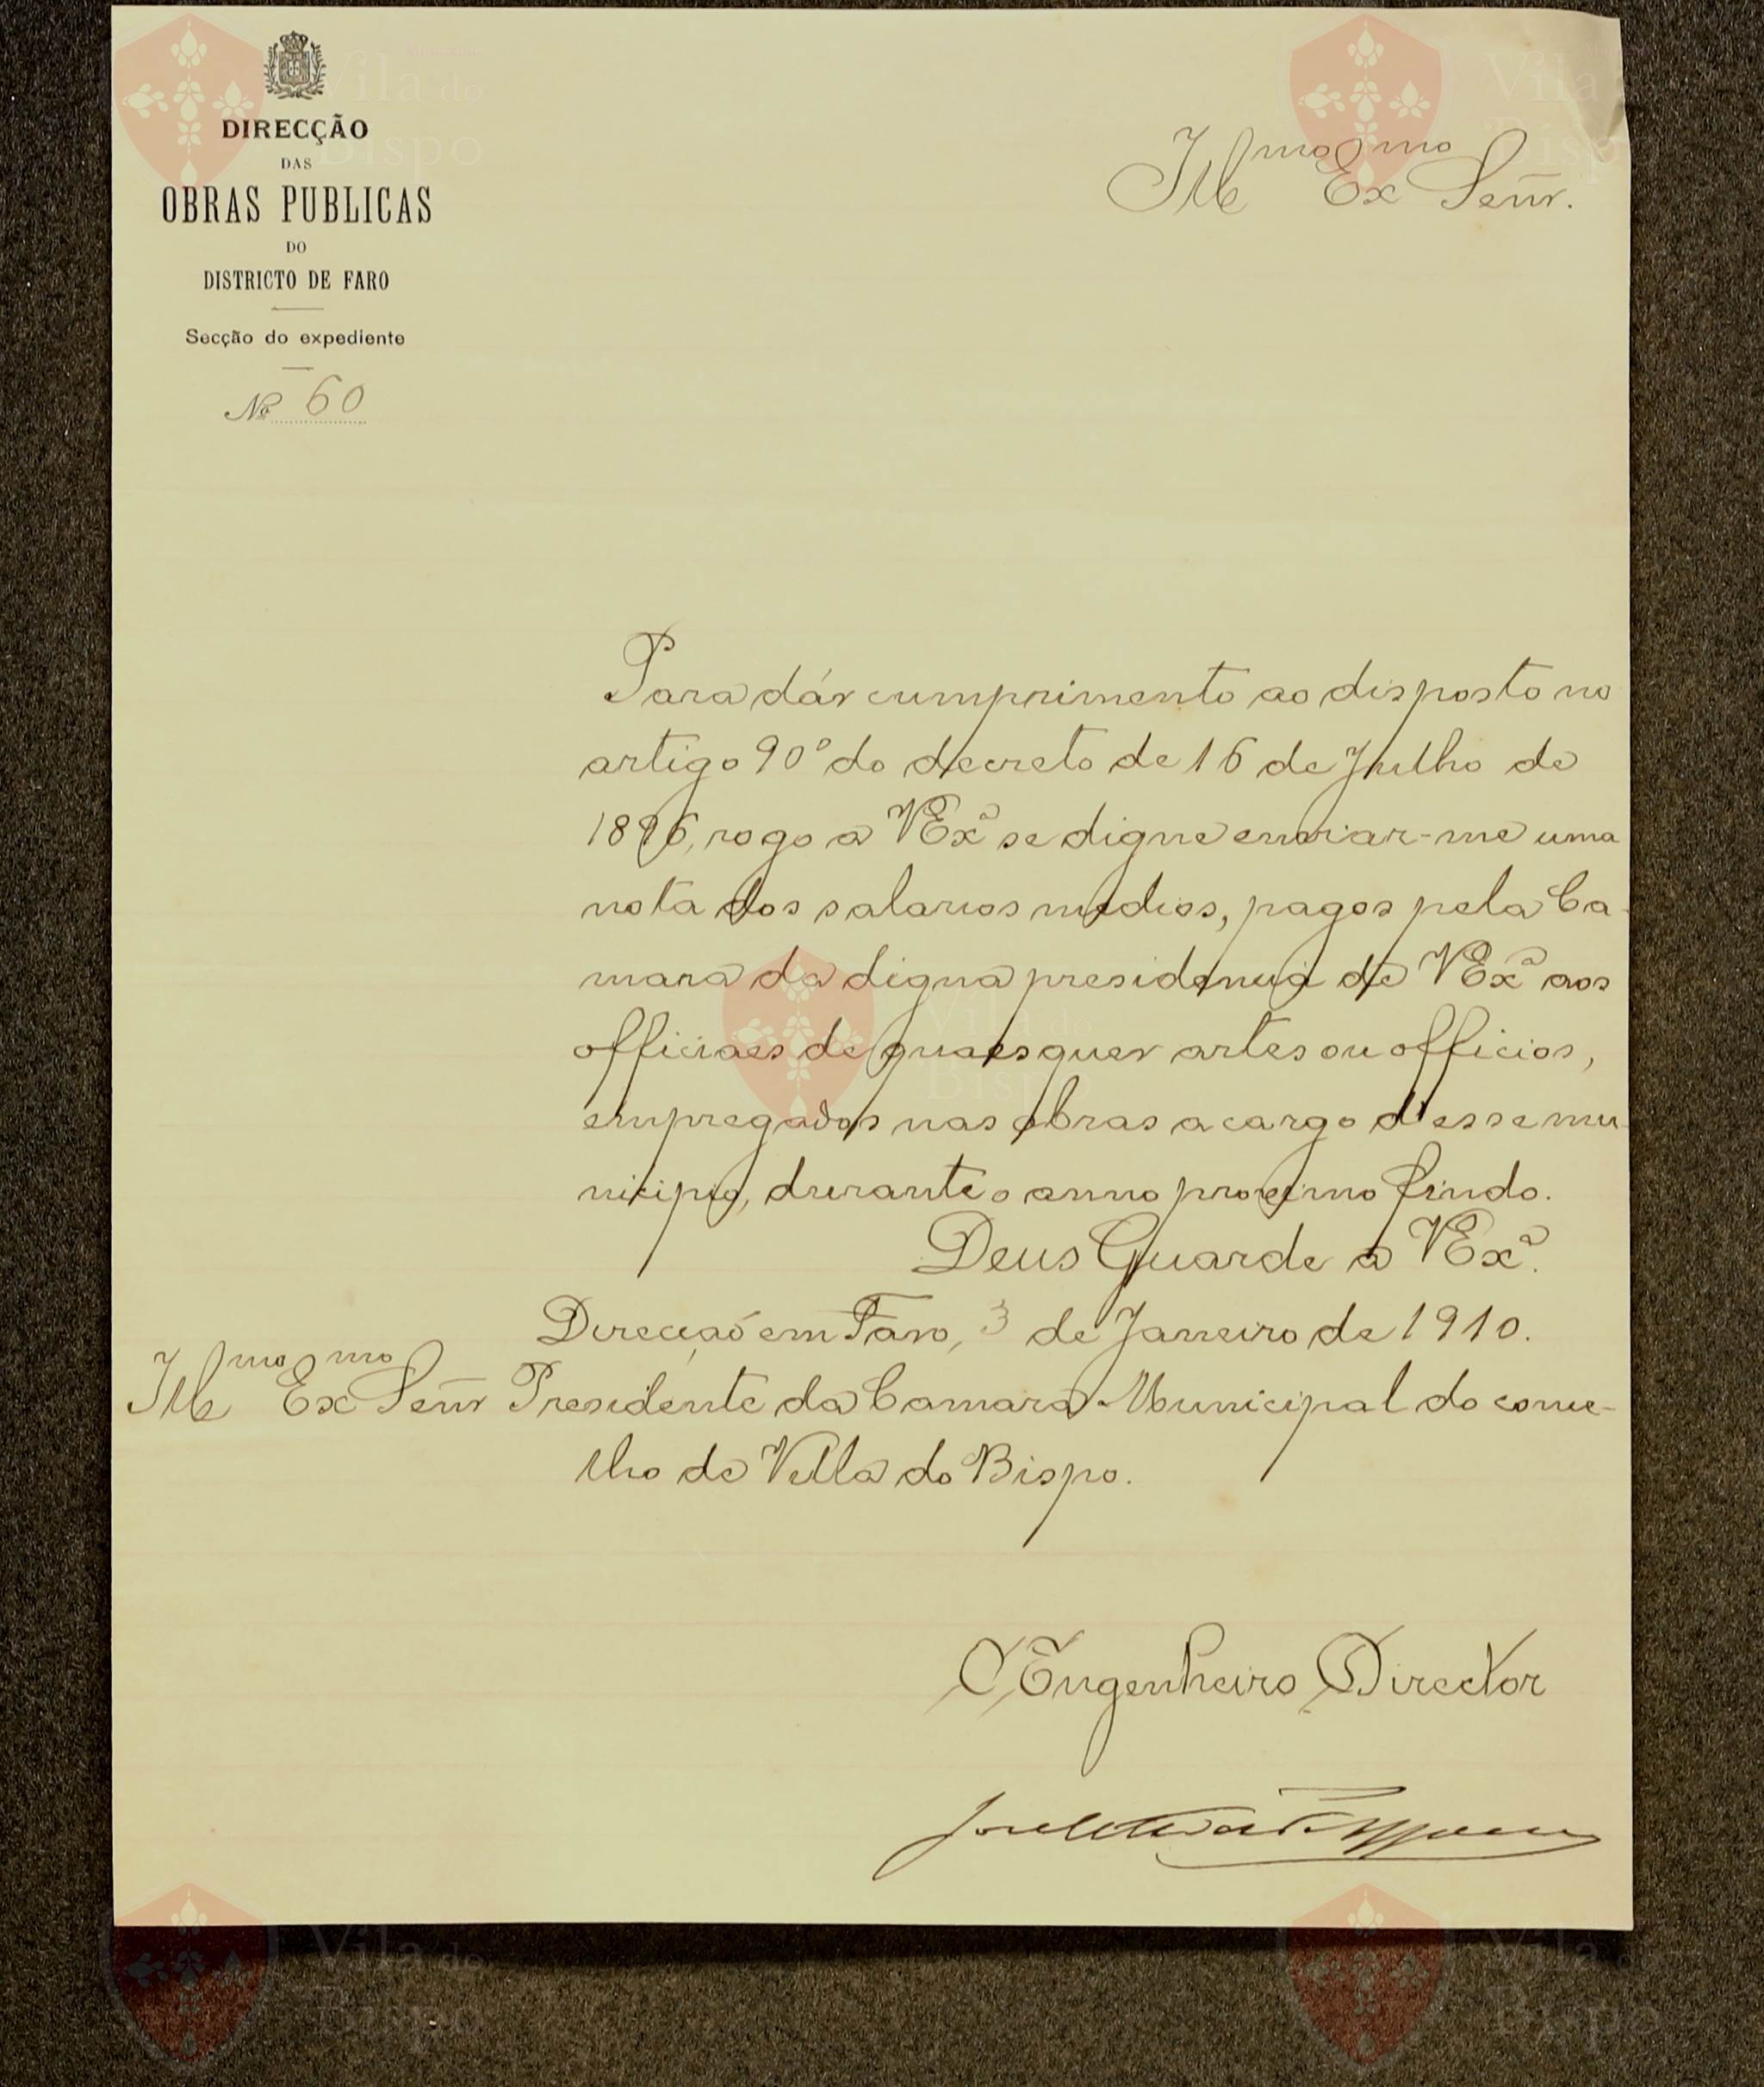 DIRECÇÃO
DAS
OBRAS PUBLICAS
DO
DISTRICTO DE FARO
Secção do expediente
Nº 60
Illmo Exmo Señr.
Para dár cumprimento ao disposto no
artigo 90º do decreto de 16 de Julho de
1896, rogo a VExª se digne enviar-me uma
nota dos salarios medios, pagos pela Ca-
mara da digna presidencia de VExª aos
officiaes de quaesquer artes ou officios,
empregados nas obras a cargo d'esse mu-
nicipio, durante o anno proximo findo.
Deus Guarde a VExª.
Direcção em Faro, 3 de Janeiro de 1910.
Illmo Exmo Señr Presidente da Camara Municipal do conce-
lho de Villa do Bispo.
O Engenheiro Director
Vila do
Bispo
Vila
Bispo
Vila do
Bispo
Vila do
Bispo
Vila
Bispo